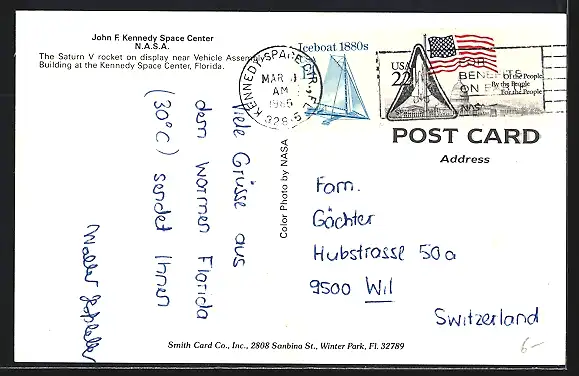 John F. Kennedy Space Center
N.A.S.A.
The Saturn V rocket on display near Vehicle Assembly
Building at the Kennedy Space Center, Florida.
KENNEDY SPACE CTR. FL
MAR
AM
1986
Iceboat 1880s
USA
22
FOR
BENEFITS
ON
NASA
Of the People
By the People
For the People
POST CARD
Address
Viele Grüsse aus
dem warmen Florida
(30°C) sendet Ihnen
Walter
Color Photo by NASA
Fam.
Gächter
Hubstrasse 50a
9500 Wil
Switzerland
Smith Card Co., Inc., 2808 Sanbina St., Winter Park, Fl. 32789
6-